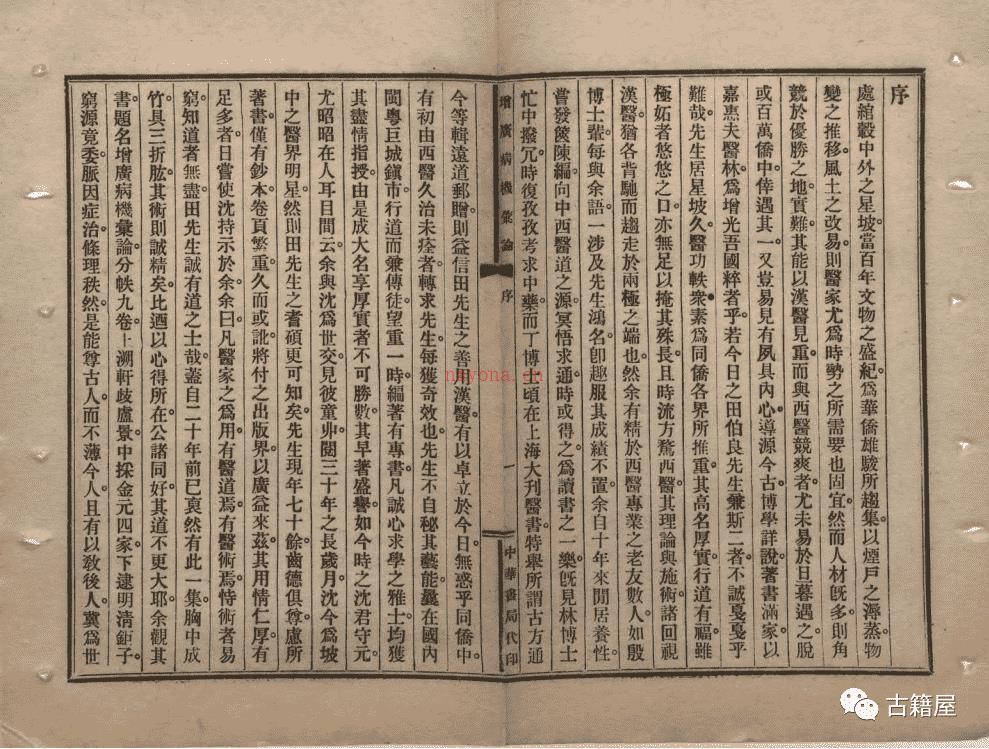 序
處綰轂中外之星坡當百年文物之盛紀為華僑雄駿所趨集以煙戶之溽蒸物
變之推移風土之改易則醫家尤為時勢之所需要也固宜然而人材旣多則角
競於優勝之地實難其能以漢醫見重而與西醫競爽者尤未易於旦暮遇之脫
或百萬僑中倖遇其一又豈易見有夙具內心導源今古博學詳說著書滿家以
嘉惠夫醫林為增光吾國粹者乎若今日之田伯良先生兼斯二者不誠戞戞乎
難哉先生居星坡久醫功軼衆素為同僑各界所推重其高名厚實行道有福雖
極妬者悠悠之口亦無足以掩其殊長且時流方騖西醫其理論與施術諸回視
漢醫猶各背馳而趨走於兩極之端也然余有精於西醫專業之老友數人如殷
博士輩每與余語一涉及先生鴻名卽趣服其成績不置余自十年來閒居養性
嘗發篋陳編向中西醫道之源冥悟求通時或得之為讀書之一樂旣見林博士
忙中撥冗時復孜孜考求中藥而丁博士頃在上海大刊醫書特舉所謂古方通
增廣病機彙論 序 一 中華書局代印
今等輯遠道郵贈則益信田先生之善用漢醫有以卓立於今日無惑乎同僑中
有初由西醫久治未痊者轉求先生每獲奇效也先生不自秘其藝能曩在國內
閩粵巨城鎮市行道而兼傳徒望重一時編著有專書凡誠心求學之雅士均獲
其盡情指授由是成大名享厚實者不可勝數其早著盛譽如今時之沈君守元
尤昭昭在人耳目間云余與沈為世交見彼童丱閱三十年之長歲月沈今為坡
中之醫界明星然則田先生之耆碩更可知矣先生現年七十餘齒德俱尊慮所
著書僅有鈔本卷頁繁重久而或訛將付之出版界以廣益來茲其用情仁厚有
足多者日嘗使沈持示於余余曰凡醫家之為用有醫道焉有醫術焉恃術者易
窮知道者無盡田先生誠有道之士哉蓋自二十年前已裒然有此一集胸中成
竹具三折肱其術則誠精矣比迺以心得所在公諸同好其道不更大耶余觀其
書題名增廣病機彙論分帙九卷上溯軒歧盧景中採金元四家下逮明清鉅子
窮源竟委脈因症治條理秩然是能尊古人而不薄今人且有以敎後人冀為世
nayona.cn
古籍屋